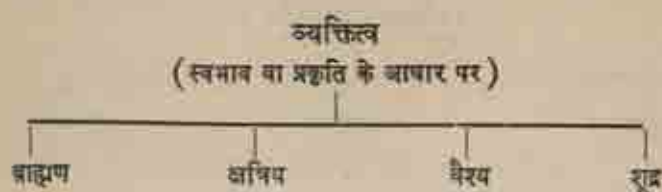 व्यक्तित्व
( स्वभाव वा प्रकृति के आधार पर )
ब्राह्मण क्षत्रिय वैश्य शूद्र